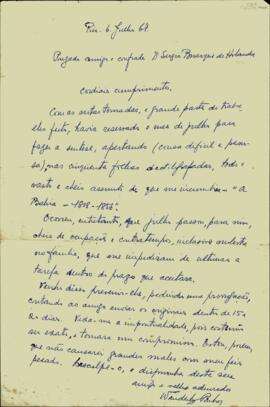 Rio. 6 Julho 64.
Prezado amigo e confrade Dr Sergio Buarque de Hollanda
Cordiais cumprimentos.
Com as notas tomadas, e grande parte do traba-
lho feito, havia reservado o mes de julho para
fazer a sintese, apertando (cousa dificil e peno-
sa), nas cinquenta folhas dactilografadas, todo o
vasto e cheio assunto de que me incumbiu - "A
Bahia - 1808-1856".
Ocorreu, entretanto, que julho passou, para mim,
cheio de ocupações e contratempos, inclusive molestia
na familia, que me impediram de ultimar a
tarefa dentro do prazo que aceitara.
Venho disso preveni-lo, pedindo uma prorrogação,
contando ao amigo enviar os originais dentro de 15 a
20 dias. Vexa-me a impontualidade, pois costumo
ser exato, e tomara um compromisso. Estou, porem,
que não causarei grandes males com meu feio
pecado. Desculpe-o, e disponha deste seu
amigo e velho admirador
Wanderley Pinho